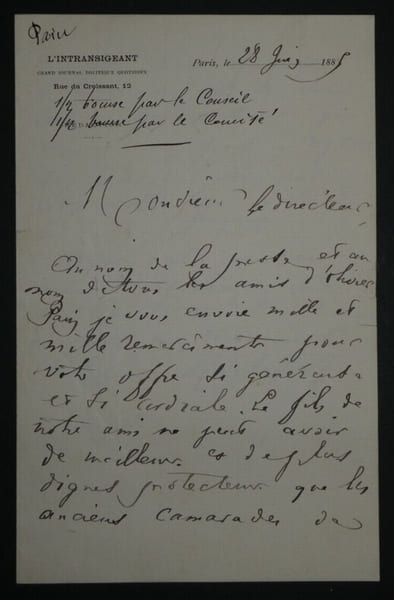 Pain
L'INTRANSIGEANT
GRAND JOURNAL POLITIQUE QUOTIDIEN
Rue du Croissant, 12
Paris, le 28 Juin 1885
1/2 bourse par le Conseil
1/4 bourse par le Comité
Monsieur le directeur,
Au nom de la presse et au
nom de tous les amis d'Olivier
Pain je vous envoie mille et
mille remerciments pour
votre offre si généreuse
et si cordiale. Le fils de
notre ami ne peut avoir
de meilleurs et de plus
dignes protecteurs que les
anciens camarades de